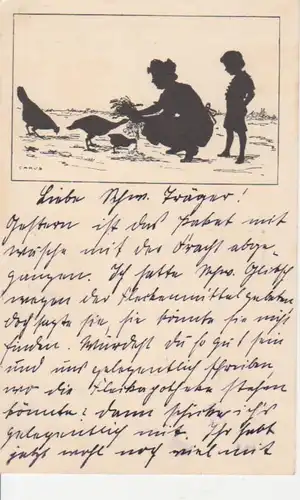 Liebe Schw. Träger!
Gestern ist das Paket mit
Wäsche mit der Fracht abge-
gangen. Ich hatte Schw.
wegen der Fleckenmittel gebeten
doch sagte sie, sie könnte sie nicht
finden. Würdest du so gut sein
und uns gelegentlich schreiben,
wo die stehen
könnte? Dann schicke ich's
gelegentlich mit. Ihr habt
jetzt wohl noch viel mit